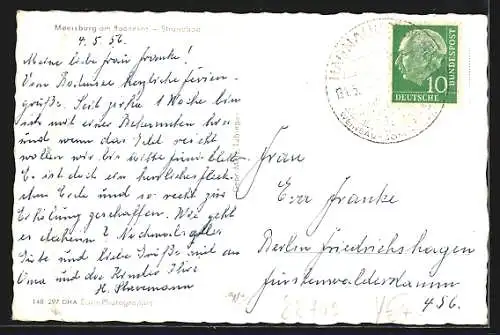 Meersburg am Bodensee – Strandbad
4. 5. 56.
Meine liebe Frau Franke!
Vom Bodensee herzliche Ferien-
grüße. Seit 1 Woche bin
ich mit einer Bekannten hier
und wenn das Geld reicht
wollen wir bis bleib-
en. Es ist doch ein herrliches Fleck-
chen Erde und so recht zur
Erholung geschaffen. Wie geht
es daheim? Nochmals alles
Gute und liebe Grüße auch an
Oma und die Kinder Ihre
H.
148 297 DHA Echte Photographie
10
DEUTSCHE
BUNDESPOST
Frau
Eva Franke
Berlin Friedrichshagen
Fürstenwalderdamm
456.